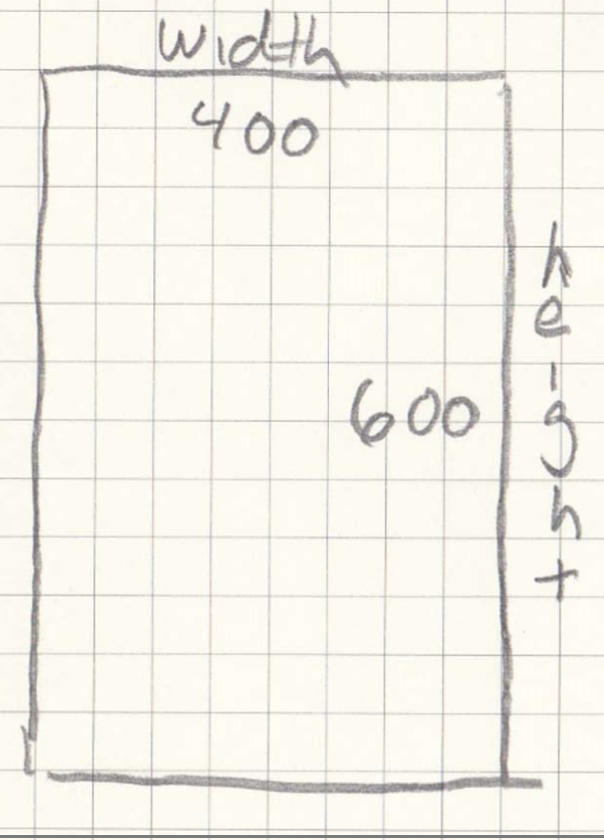 width
400
600
height